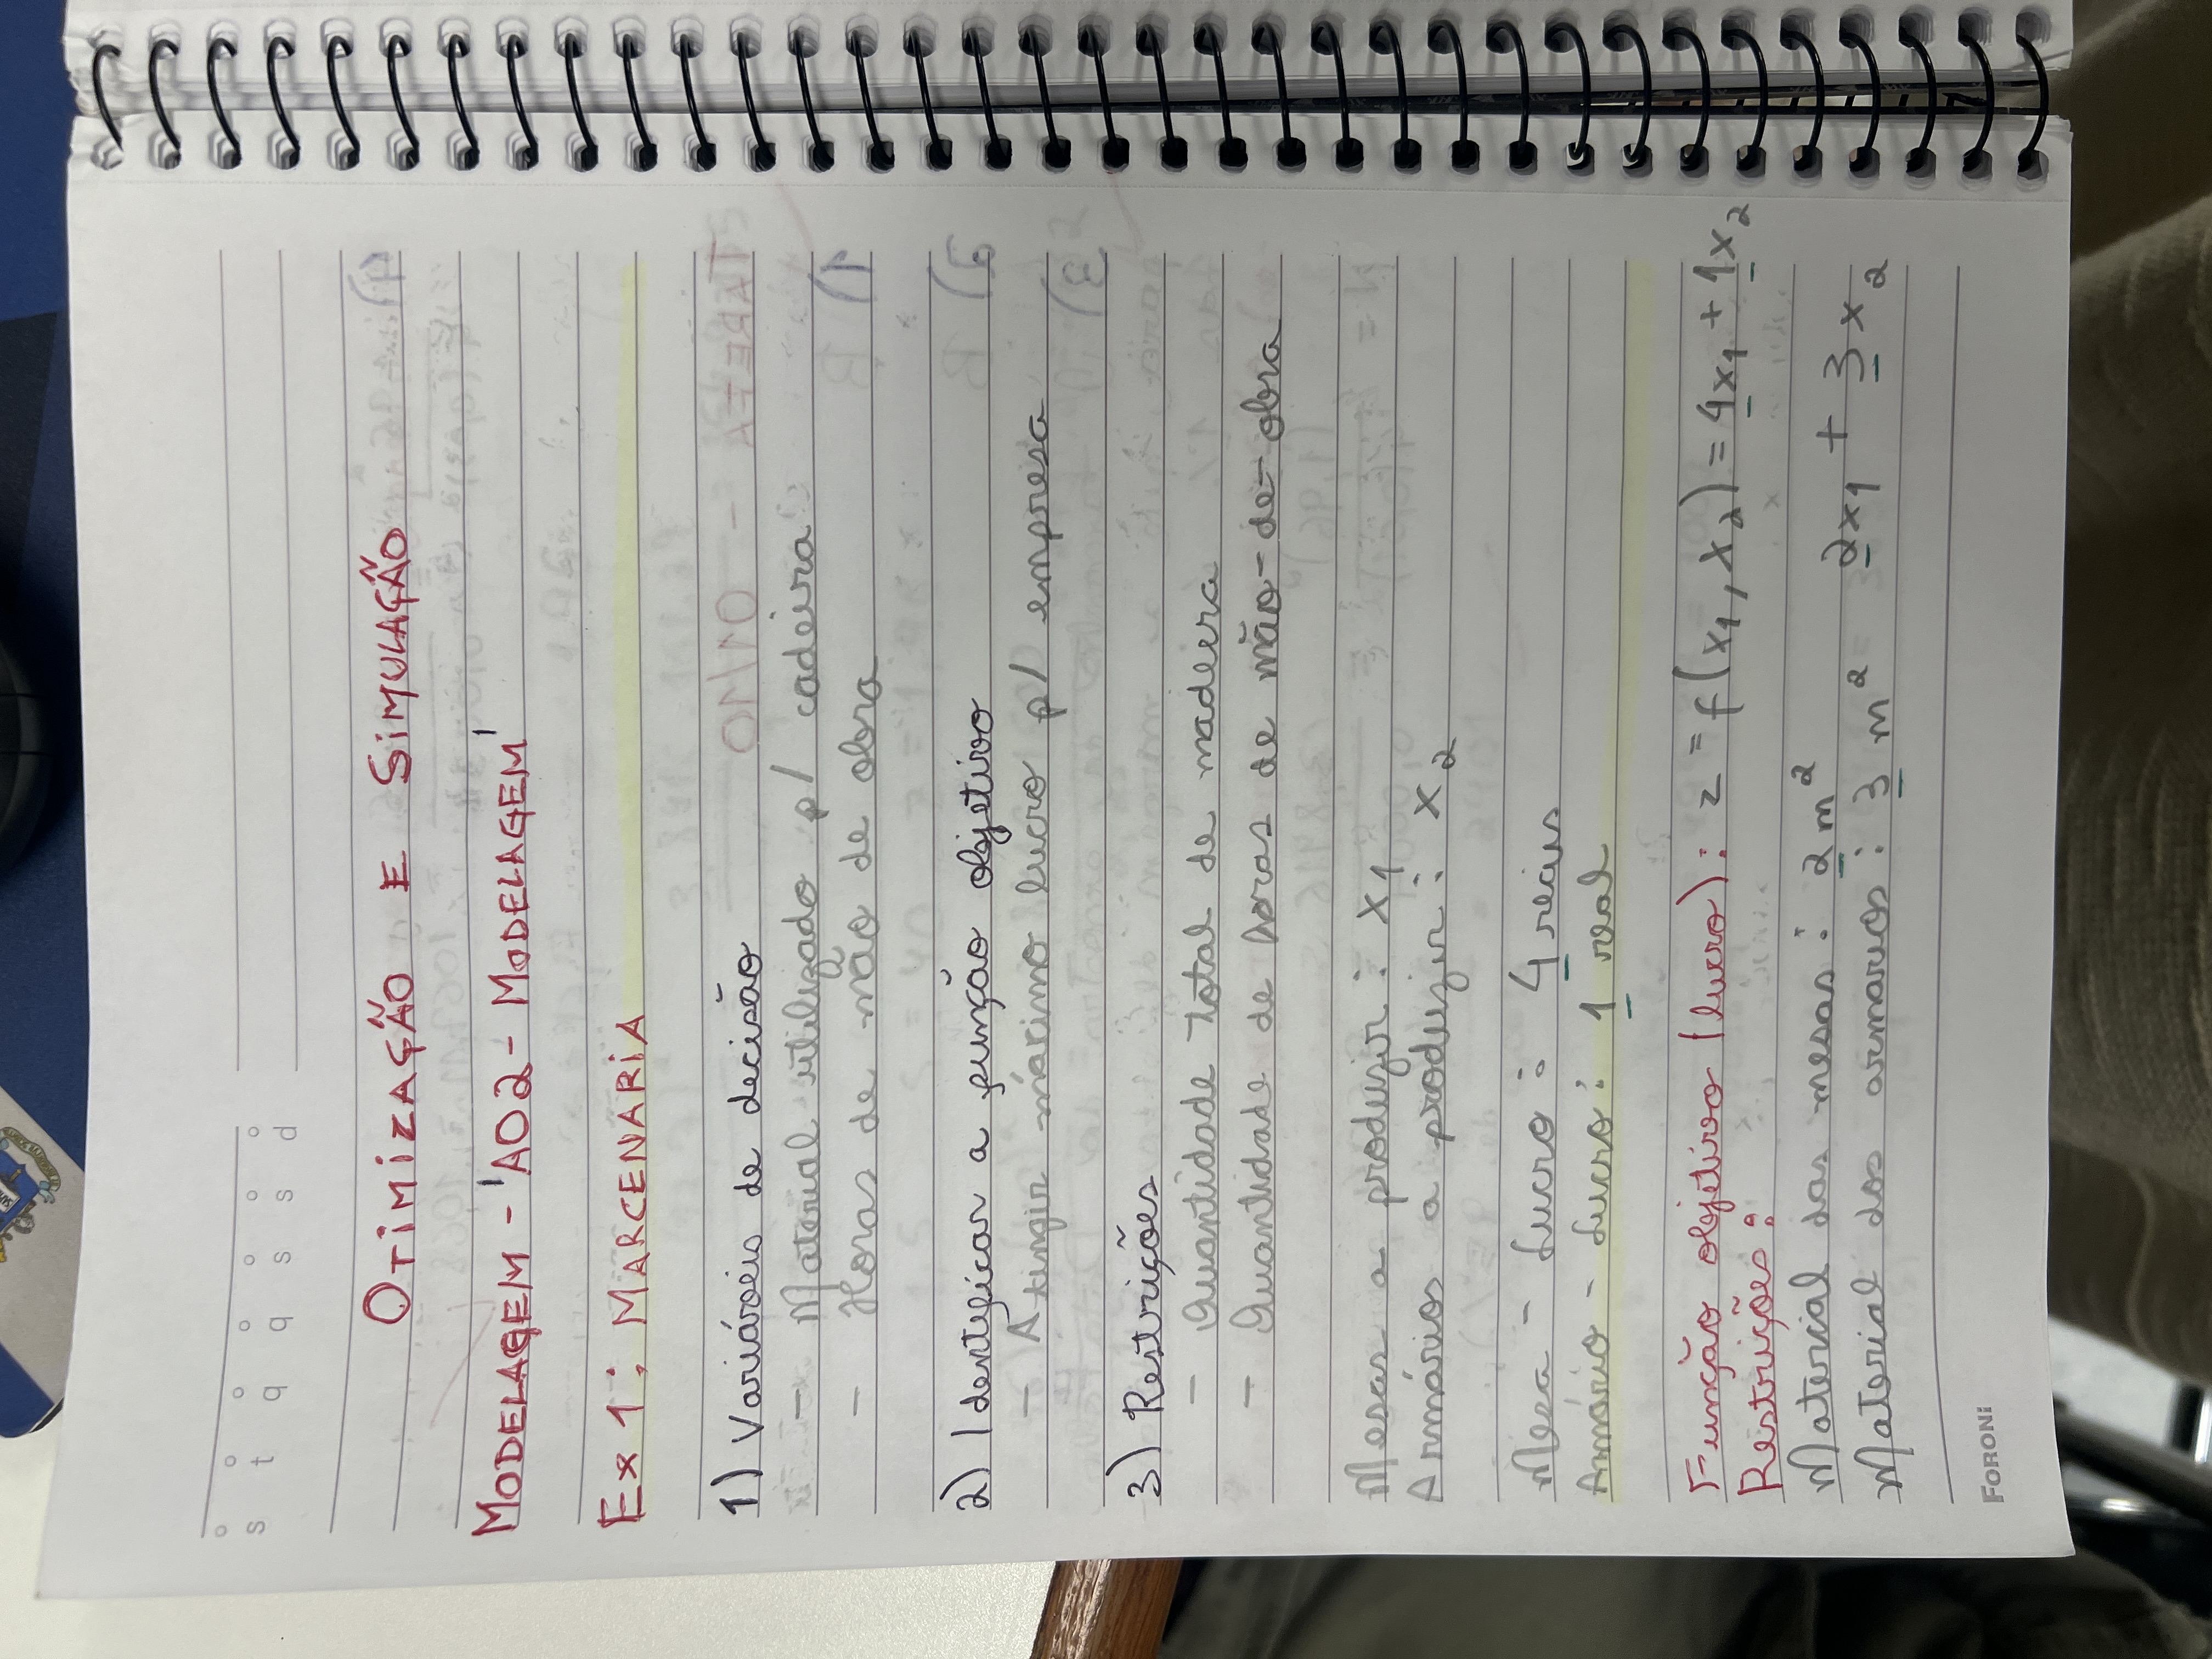 s t q q s s d
OTIMIZAÇÃO E SIMULAÇÃO
MODELAGEM - 'AO2 - MODELAGEM'
Ex 1: MARCENARIA
1) Variáveis de decisão
- Material utilizado p/ cadeira
- Horas de mão de obra
2) Identificar a função objetivo
- Atingir máximo lucro p/ empresa
3) Restrições
- Quantidade total de madeira
- Quantidade de horas de mão-de-obra
Mesas a produzir: x1
Armários a produzir: x2
Mesa - Lucro: 4 reais
Armário - Lucro: 1 real
Função objetivo (lucro): z = f(x1, x2) = 4x1 + 1x2
Restrições:
Material das mesas: 2 m²
2x1 + 3x2
Material dos armarios: 3 m²
FORONI